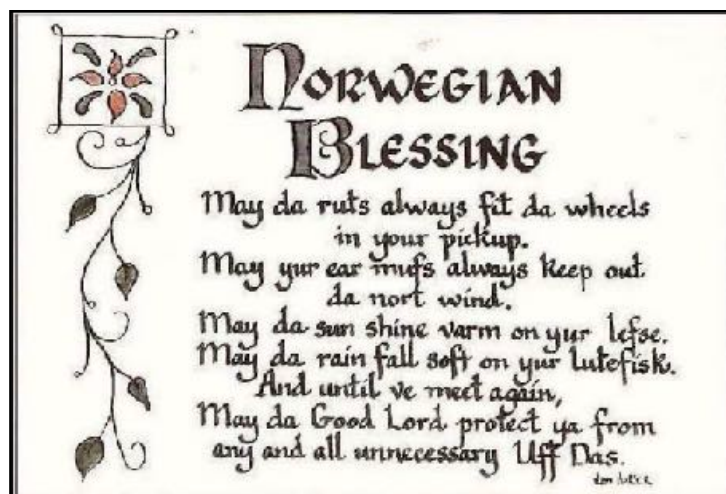 NORWEGIAN
BLESSING
May da ruts always fit da wheels
in your pickup.
May yur ear mufs always keep out
da nort wind.
May da sun shine varm on yur lefse.
May da rain fall soft on yur lutefisk.
And until ve meet again,
May da Good Lord protect ya from
any and all unnecessary Uff Das.